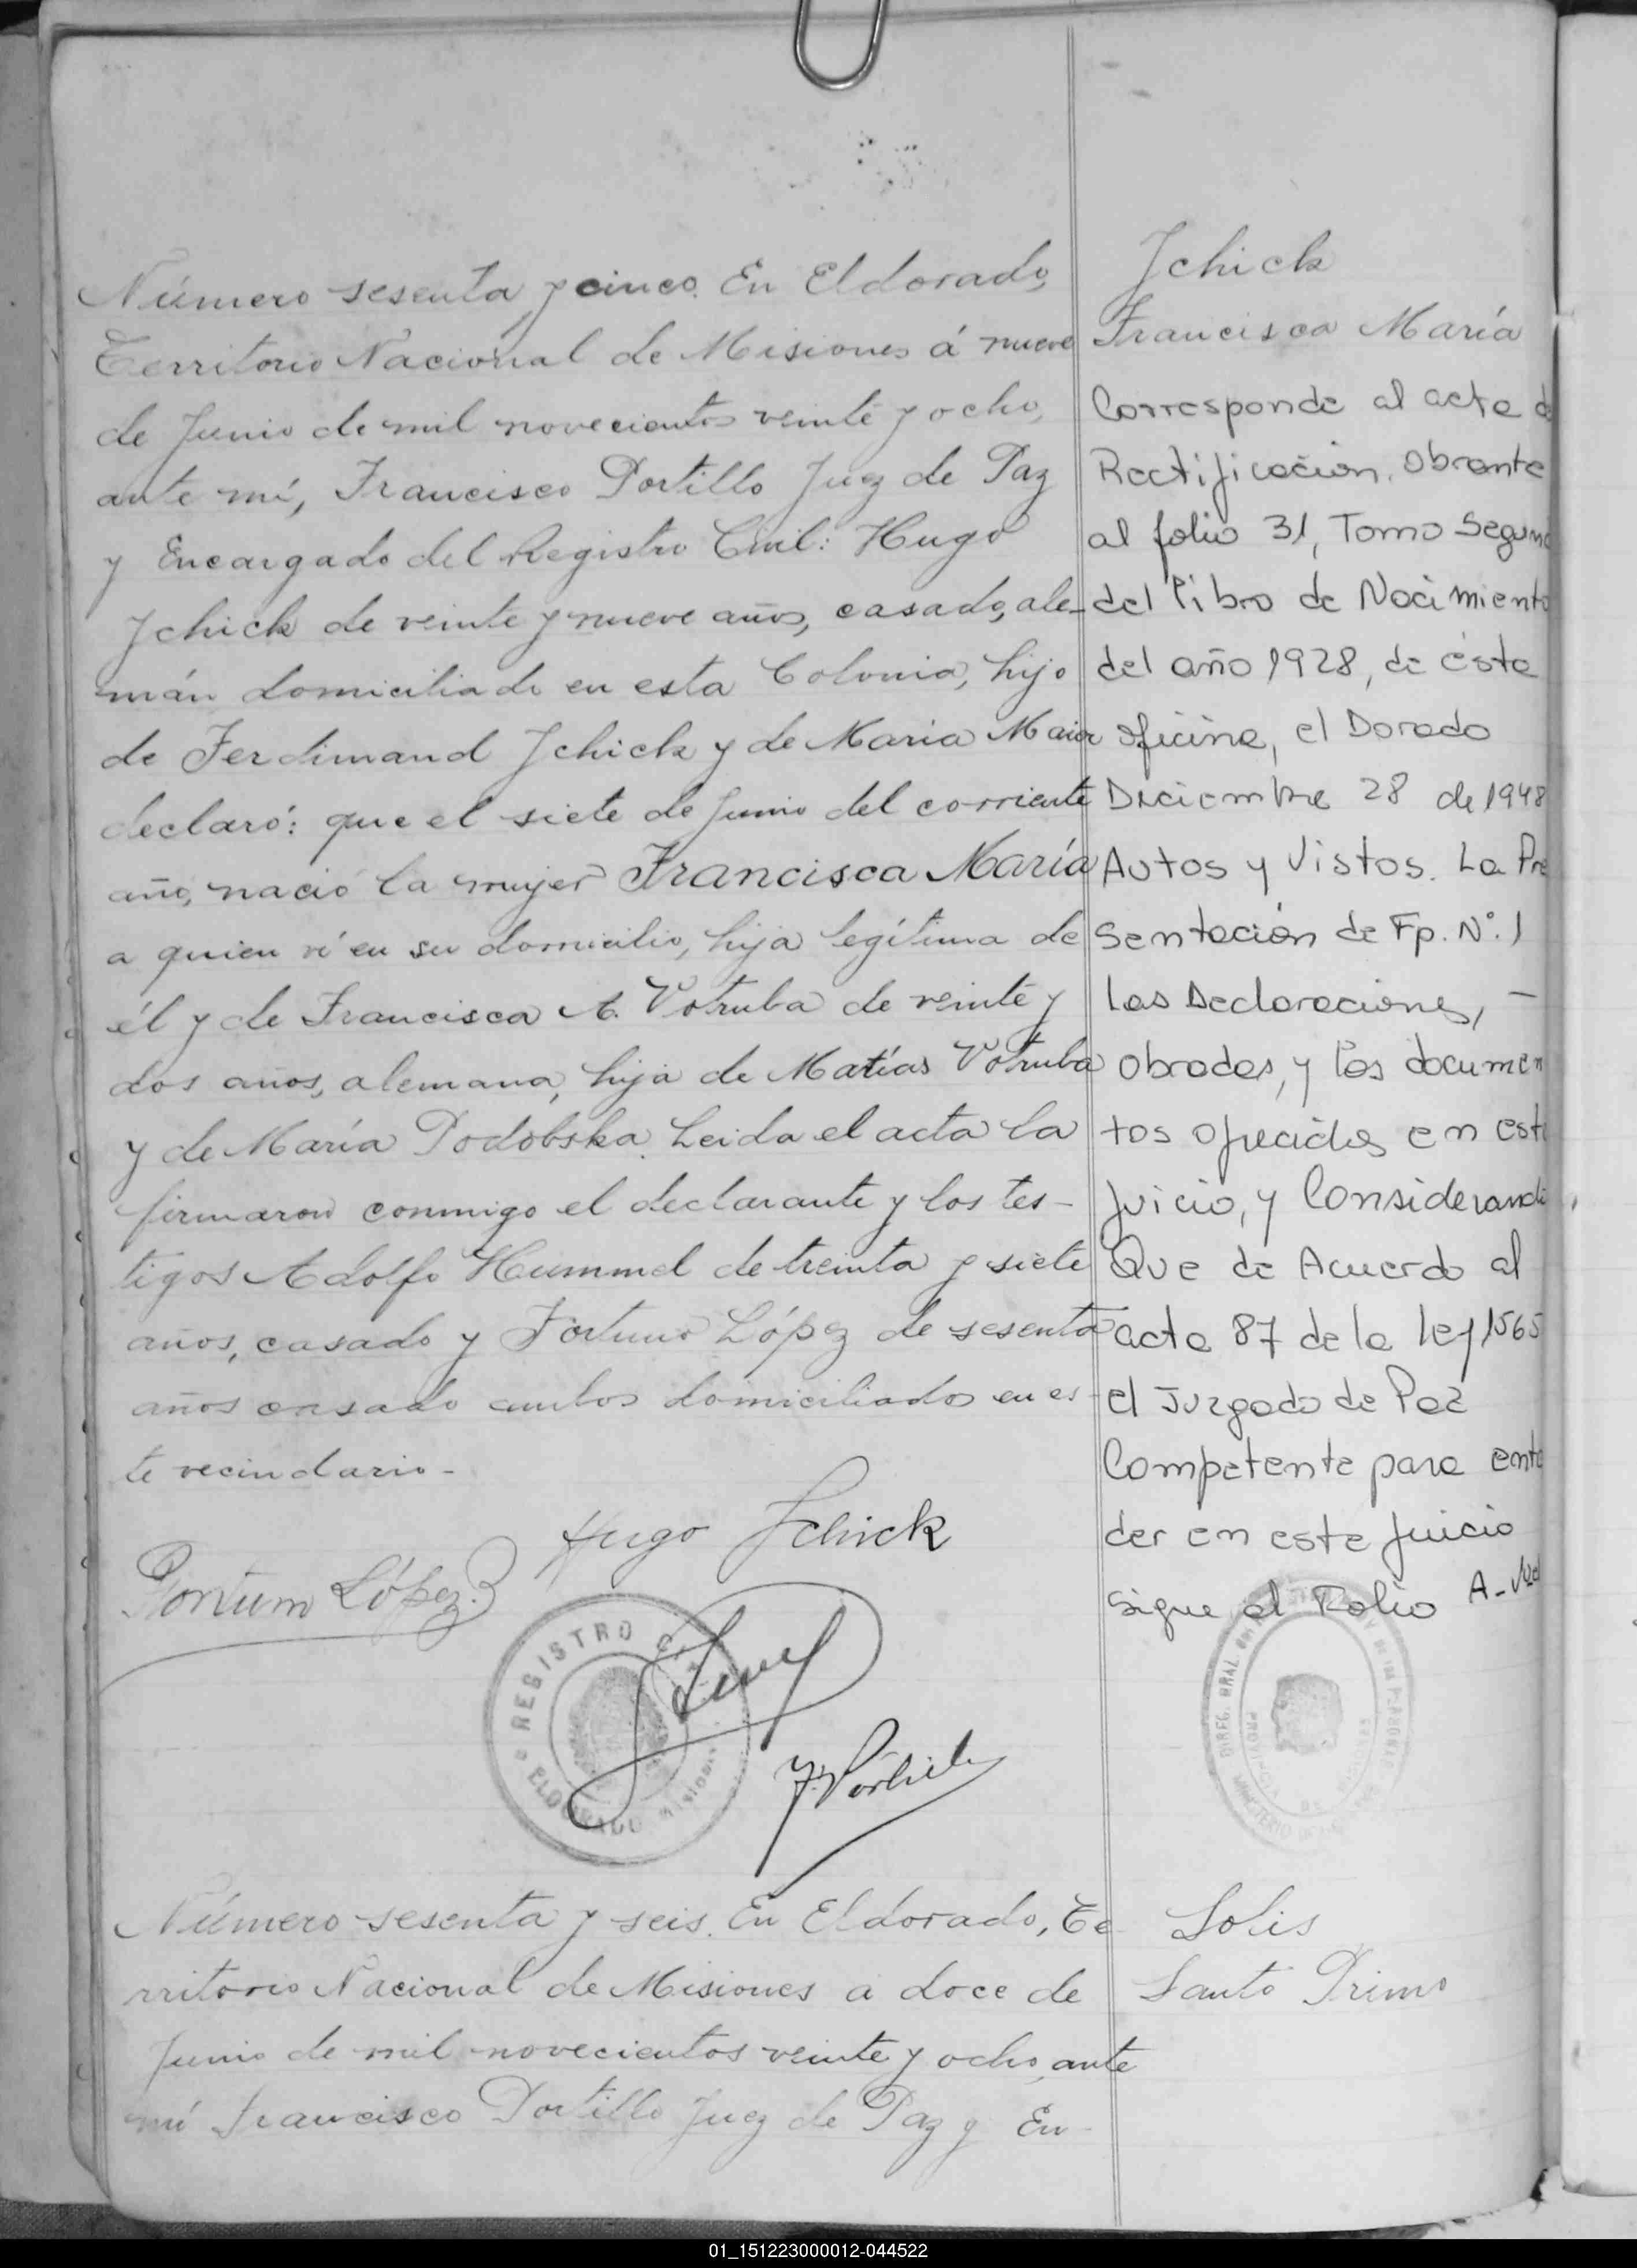 Número sesenta y cinco. En Eldorado,
Territorio Nacional de Misiones á nueve
de Junio de mil novecientos veinte y ocho,
ante mí, Francisco Portillo Juez de Paz
y Encargado del Registro Civil: Hugo
Schick de veinte y nueve años, casado, ale-
mán domiciliado en esta Colonia, hijo
de Ferdimand Schick y de Maria Maier
declaró: que el siete de Junio del corriente
año, nació la mujer Francisca María
a quien ví en su domicilio, hija legítima de
él y de Francisca A. Votruba de veinte y
dos años, alemana, hija de Matías Votruba
y de María Podobska. Leida el acta la
firmaron conmigo el declarante y los tes-
tigos Adolfo Hummel de treinta y siete
años, casado y Fortuno López de sesenta
años casado ambos domiciliados en es-
te vecindario-
Hugo Schick
López
REGISTRO
ELDORADO Misiones
Schick
Francisca María
Corresponde al acta d
Rectificación, Obrante
al folio 31, Tomo Segun
del libro de Nacimiento
del año 1928, de ésta
oficina, el Dorado
Diciembre 28 de 1948
Autos y Vistos. La Pre
sentación de Fp. Nº. 1
las Declaraciones, -
obrades, y los documen
tos ofrecidos en est
juicio, y Considerand
Que de Acuerdo al
acta 87 de la ley 1565
el Juzgado de Paz
Competente para ente
der en este juicio
Sigue al Folio A-
DIREG. GRAL.
Número sesenta y seis. En Eldorado, Te
rritorio Nacional de Misiones a doce de
Junio de mil novecientos veinte y ocho, ante
mí Francisco Portillo Juez de Paz y En-
Solis
Santo Primo
01_151223000012-044522